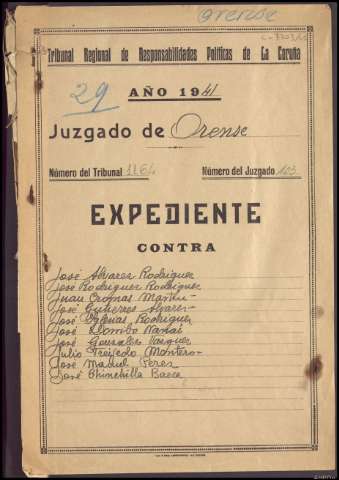 Orense
Tribunal Regional de Responsabilidades Políticas de La Coruña
29
AÑO 1941
Juzgado de Orense
Número del Tribunal 1164 Número del Juzgado 103
EXPEDIENTE
CONTRA
José Alvarez Rodriguez
José Rodriguez Rodriguez
Juan
José Gutierrez Alvarez
José Iglesias Rodriguez
José
José Gonzalez Vazquez
Julio Montero
José Manuel Perez
José Chinchilla Baeza